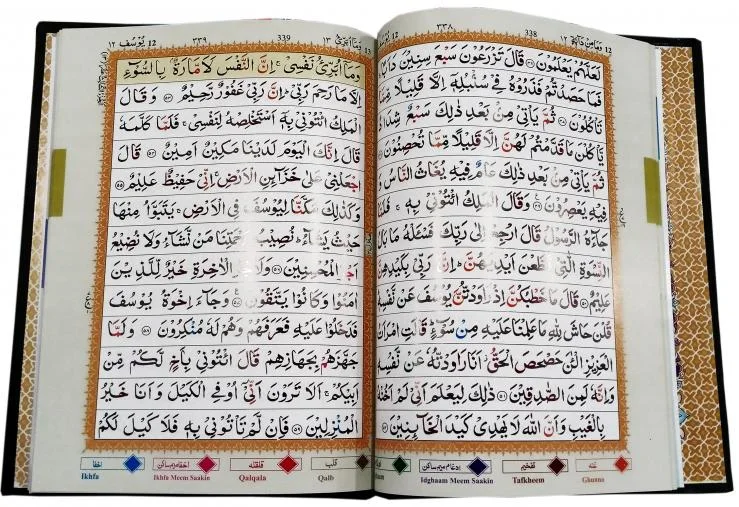 وَمَا مِنْ دَآبَّةٍ ١٢ 338 ٣٣٨ يُوْسُف 12
لَعَلَّهُمْ يَعْلَمُوْنَ ﴿٤٦﴾ قَالَ تَزْرَعُوْنَ سَبْعَ سِنِيْنَ دَاَبًا
فَمَا حَصَدْتُّمْ فَذَرُوْهُ فِيْ سُنْۢبُلِهٖۤ اِلَّا قَلِيْلًا مِّمَّا
تَاْكُلُوْنَ ﴿٤٧﴾ ثُمَّ يَاْتِيْ مِنْۢ بَعْدِ ذٰلِكَ سَبْعٌ شِدَادٌ
يَّاْكُلْنَ مَا قَدَّمْتُمْ لَهُنَّ اِلَّا قَلِيْلًا مِّمَّا تُحْصِنُوْنَ
ثُمَّ يَاْتِيْ مِنْۢ بَعْدِ ذٰلِكَ عَامٌ فِيْهِ يُغَاثُ النَّاسُ وَ
فِيْهِ يَعْصِرُوْنَ ﴿٤٩﴾ وَقَالَ الْمَلِكُ ائْتُوْنِيْ بِهٖ ۚ فَلَمَّا
جَآءَهُ الرَّسُوْلُ قَالَ ارْجِعْ اِلٰى رَبِّكَ فَسْـَٔلْهُ مَا بَالُ
النِّسْوَةِ الّٰتِيْ قَطَّعْنَ اَيْدِيَهُنَّ ؕ اِنَّ رَبِّيْ بِكَيْدِهِنَّ
عَلِيْمٌ ﴿٥٠﴾ قَالَ مَا خَطْبُكُنَّ اِذْ رَاوَدْتُّنَّ يُوْسُفَ عَنْ نَّفْسِهٖ
قُلْنَ حَاشَ لِلّٰهِ مَا عَلِمْنَا عَلَيْهِ مِنْ سُوْٓءٍ ؕ قَالَتِ امْرَاَتُ
الْعَزِيْزِ الْـٰٔنَ حَصْحَصَ الْحَقُّ ۫ اَنَا رَاوَدْتُّهٗ عَنْ نَّفْسِهٖ
وَاِنَّهٗ لَمِنَ الصّٰدِقِيْنَ ﴿٥١﴾ ذٰلِكَ لِيَعْلَمَ اَنِّيْ لَمْ اَخُنْهُ
بِالْغَيْبِ وَاَنَّ اللّٰهَ لَا يَهْدِيْ كَيْدَ الْخَآئِنِيْنَ ﴿٥٢﴾
غنہ تفخیم ادغام میم ساکن
Ghunna Tafkheem Idghaam Meem Saakin
وَمَآ اُبَرِّئُ ١٣ 339 ٣٣٩ يُوْسُف 12 ١٢
وَمَآ اُبَرِّئُ نَفْسِيْ ۚ اِنَّ النَّفْسَ لَاَمَّارَةٌۢ بِالسُّوْٓءِ
اِلَّا مَا رَحِمَ رَبِّيْ ؕ اِنَّ رَبِّيْ غَفُوْرٌ رَّحِيْمٌ ﴿٥٣﴾ وَقَالَ
الْمَلِكُ ائْتُوْنِيْ بِهٖۤ اَسْتَخْلِصْهُ لِنَفْسِيْ ۚ فَلَمَّا كَلَّمَهٗ
قَالَ اِنَّكَ الْيَوْمَ لَدَيْنَا مَكِيْنٌ اَمِيْنٌ ﴿٥٤﴾ قَالَ
اجْعَلْنِيْ عَلٰى خَزَآئِنِ الْاَرْضِ ۚ اِنِّيْ حَفِيْظٌ عَلِيْمٌ ﴿٥٥﴾
وَكَذٰلِكَ مَكَّنَّا لِيُوْسُفَ فِي الْاَرْضِ ۚ يَتَبَوَّاُ مِنْهَا
حَيْثُ يَشَآءُ ؕ نُصِيْبُ بِرَحْمَتِنَا مَنْ نَّشَآءُ وَلَا نُضِيْعُ
اَجْرَ الْمُحْسِنِيْنَ ﴿٥٦﴾ وَلَاَجْرُ الْاٰخِرَةِ خَيْرٌ لِّلَّذِيْنَ
اٰمَنُوْا وَكَانُوْا يَتَّقُوْنَ ﴿٥٧﴾ وَجَآءَ اِخْوَةُ يُوْسُفَ
فَدَخَلُوْا عَلَيْهِ فَعَرَفَهُمْ وَهُمْ لَهٗ مُنْكِرُوْنَ ﴿٥٨﴾ وَلَمَّا
جَهَّزَهُمْ بِجَهَازِهِمْ قَالَ ائْتُوْنِيْ بِاَخٍ لَّكُمْ مِّنْ
اَبِيْكُمْ ۚ اَلَا تَرَوْنَ اَنِّيْٓ اُوْفِي الْكَيْلَ وَاَنَا خَيْرُ
الْمُنْزِلِيْنَ ﴿٥٩﴾ فَاِنْ لَّمْ تَاْتُوْنِيْ بِهٖ فَلَا كَيْلَ لَكُمْ
قلب قلقلہ اخفا میم ساکن اخفا
Qalb Qalqala Ikhfa Meem Saakin Ikhfa